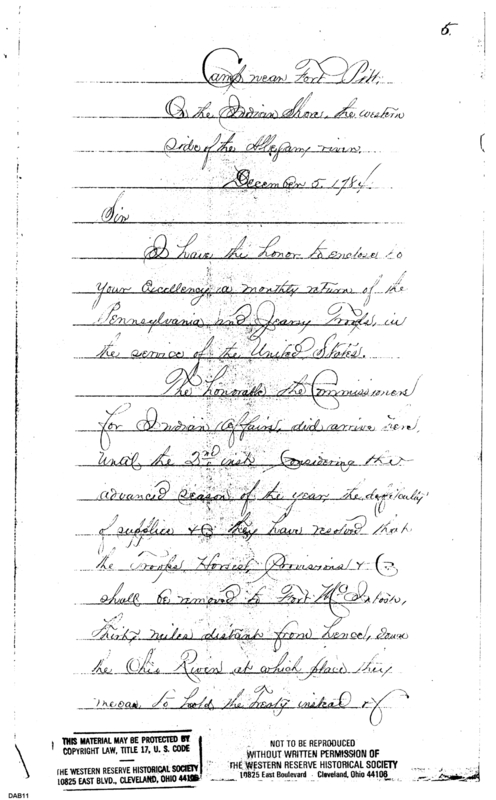 5.
Camp near Fort Pitt,
On the Indian Shore, the western
side of the Allegany river.
December 5. 1784.
Sir
I have the honor to enclose to
your Excellency, a monthly return of the
Pennsylvania and Jearsy Troops, in
the service of the United States.
The honorable the Commissioners
for Indian Affairs, did arrive here,
until the 2nd inst. Considering the
advanced season of the year, the difficulty
of supplies &C they have resolved that
the Troops, Horses, Provisions & C
shall be removed to Fort McIntosh,
thirty miles distant from hence, down
the Ohio River at which place they
mean to hold the Treaty instead of
THIS MATERIAL MAY BE PROTECTED BY
COPYRIGHT LAW, TITLE 17, U. S. CODE
THE WESTERN RESERVE HISTORICAL SOCIETY
10825 EAST BLVD., CLEVELAND, OHIO 44106
NOT TO BE REPRODUCED
WITHOUT WRITTEN PERMISSION OF
THE WESTERN RESERVE HISTORICAL SOCIETY
10825 East Boulevard - Cleveland, Ohio 44106
DAB11